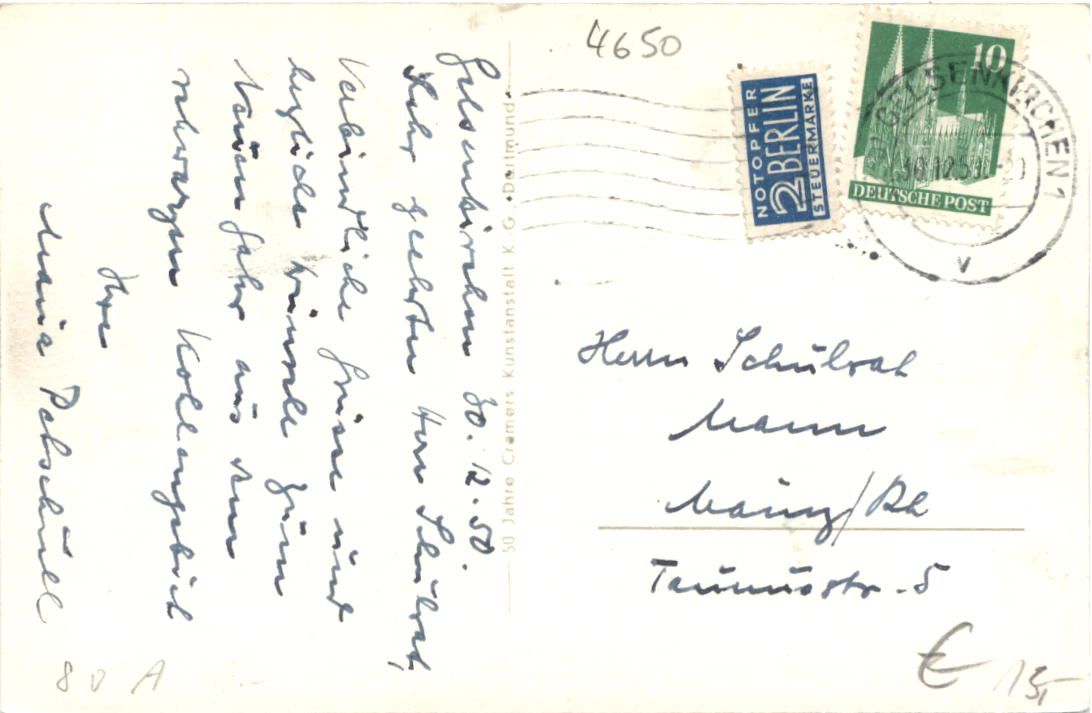 4650
NOTOPFER
2 BERLIN
STEUERMARKE
10
DEUTSCHE POST
GELSENKIRCHEN 1
30.12.50
v
Gelsenkirchen 30.12.50.
Sehr geehrter Herr Schulrat,
Verbindliche Grüsse und
herzliche Wünsche zum
neuen Jahr aus dem
schwarzen Kohlengebiet
Ihre
Maria
50 Jahre Cramers Kunstanstalt K.G., Dortmund
Herrn Schulrat
Mann
Mainz/Rh
Taunusstr. 5
€ 13,-
80 A